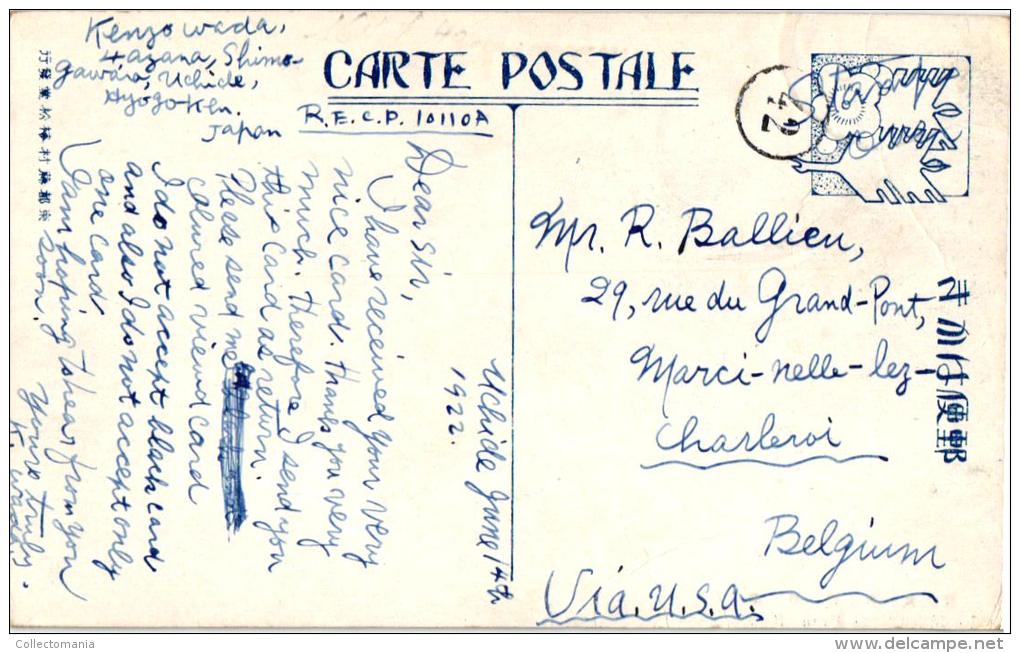 Kenzo Wada,
4 azana, Shimo-
gawara, Uchide,
Hyogo Ken.
Japan
CARTE POSTALE
R.E.C.P. 10110A
42
Dear Sir,
I have received your very
nice card. thank you very
much. therefore I send you
this card as return.
Please send me
coloured viewed card
I do not accept black card
and also I do not accept only
one card.
I am hoping to hear from you
soon.
Yours truly.
K. Wada.
Uchide June 14th
1922.
Mr. R. Ballieu,
29, rue du Grand-Pont,
Marci-nelle-lez-
Charleroi
Belgium
Via. U.S.A.
きがは便郵
行發堂松
Collectomania
delcampe.net